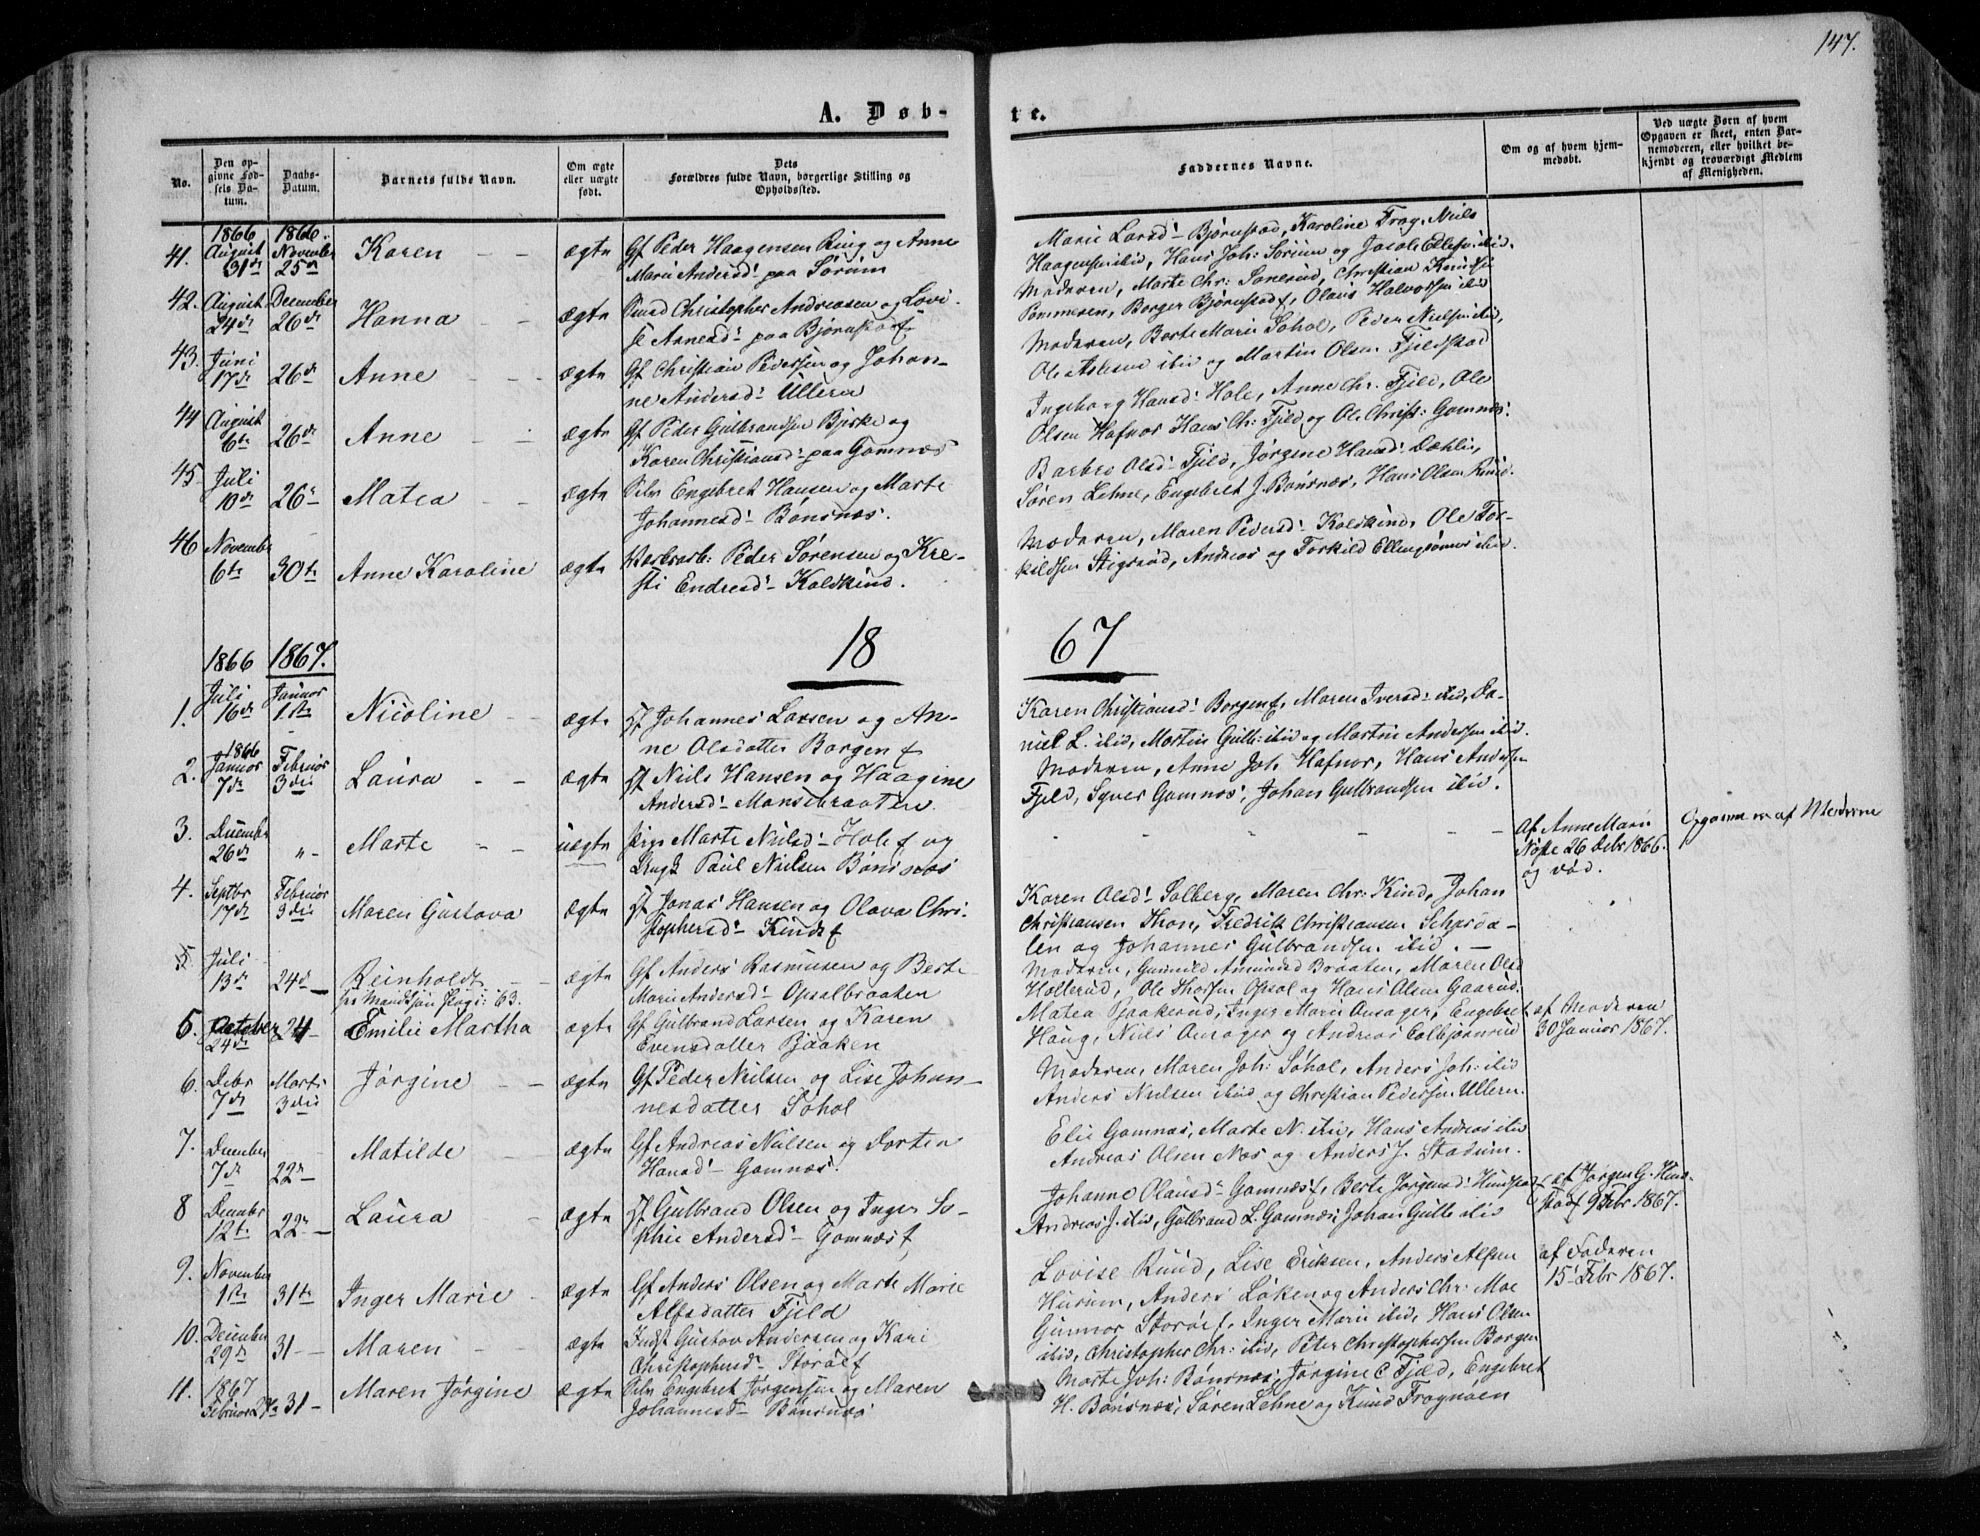 147.
A. Døb-
te.
No.
Den op-
givne Fød-
sels Da-
tum.
Daabs-
Datum.
Barnets fulde Navn.
Om ægte
eller uægte
født.
Dets
Forældres fulde Navn, borgerlige Stilling og
Opholdssted.
Faddernes Navne.
Om og af hvem hjem-
medøbt.
Ved uægte Børn af hvem
Opgaven er skeet, enten Bar-
nemoderen, eller hvilket be-
kjendt og troværdigt Medlem
af Menigheden.
1866 1866.
41. August 31te November 25de Karen ægte Gf Peder Haagensen Ring og Anne
Marie Andersd: paa Sørum
Marie Larsd: Bjørnstad, Karoline Frog, Niels
Haagensen ibid, Hans Joh: Sørum og Jacob Ellefs: ibid.
42. August 24de December 26de Hanna ægte Christopher Andreasen og Lovi-
se Arnesd: paa Bjørnstad
Moderen, Marte Chr: Sonerud, Christian Knuds:
Pommeren, Borger Bjørnstad, Olaus Halvorsen ibid
43. Juni 17de 26de Anne ægte Gf Christian Pedersen og Johan-
ne Andersd: Ullern
Moderen, Berte Marie Søhol, Peder Nielsen ibid,
Ole Aslesen ibid og Martin Olsen Fjeldstad
44 August 6te 26de Anne ægte Gf Peder Gulbrandsen Bjerke og
Karen Christiansd: paa Gomnæs
Ingeborg Hansd: Hole, Anne Chr. Fjeld, Ole
Olsen Hafnor Hans Ch: Fjeld og Ole Christ: Gomnæs.
45 Juli 10de 26de Matea ægte Selv Engebret Hansen og Marte
Johannesd: Bønsnæs.
Barbro Olsd: Fjeld, Jørgine Hansd: Dæhlin,
Søren Lehne, Engebret J. Bønsnæs, Hans Olsen
46 November 6te 30te Anne Karoline ægte Peder Sørensen og Kre-
sti Endresd: Koldkind.
Moderen, Maren Pedersd: Koldkind, Ole Tor-
kildsen Stigsrød, Andreas og Torkild Ellingsønner ibid.
18 67
1866 1867.
1. Juli 16de Januar 1ste Nicoline ægte Johannes Larsen og An-
ne Olsdatter Borgen
Karen Christiansd: Borgen, Maren Iversd: ibid, Da-
niel L. ibid, Martin Gulb: ibid og Martin Andersen ibid.
2. 1866 Januar 7de Februar 3die Laura ægte Niels Hansen og Haagine
Andersd: Monsebraaten
Moderen, Anne Joh. Hafnor, Hans Anders:
Fjeld, Syver Gomnæs, Johan Gulbrandsen ibid.
3. December 26de Marte uægte Pige Marte Nielsd: Hole og
Ungk Paul Nielsen Bønsnæs
Af Anne Marie
Nøste 26 Debr 1866.
og død.
Opgaven er af Moderen
4. Septbr 17de Februar 3die Maren Gustava ægte Jonas Hansen og Olava Chri-
stophersd: Kind
Karen Olsd: Solberg, Maren Chr: Kind, Johan
Christiansen Thon, Fredrik Christiansen Schjørda-
len og Johannes Gulbrandsen ibid.
5. Juli 13de 24de Reinholdt ægte Gf Anders Rasmusen og Berte
Marie Andersd: Opsalbraaten
Moderen, Gunnild Amundsd Braaten, Maren Olsd
Hollerud, Ole Thorsen Opsal og Hans Olsen Gaarud.
5. October 24de 24 Emilie Martha ægte Gf Gulbrand Larsen og Karen
Evensdatter Bjaaken
Matea Bjaakerud, Inger Marie Onsager, Engebret
Haug, Niels Onsager og Andreas Colbjørnrud
af Moderen
30 Januar 1867.
6. Debr 7de Marts 3die Jørgine ægte Gf Peder Nielsen og Lise Johan-
nesdatter Søhol
Moderen, Maren Joh: Søhol, Anders Joh: ibid
Anders Nielsen ibid og Christian Pedersen Ullern.
7. December 7de 22de Matilde ægte Gf Andreas Nielsen og Dorthea
Hansd: Gomnæs.
Elie Gomnæs, Marte N. ibid, Hans Andreas ibid
Andreas Olsen Næs og Anders J. Stadum.
8 December 12te 22de Laura ægte Gulbrand Olsen og Inger So-
phie Andersd: Gomnæs
Johanne Olausd: Gomnæs, Berte Jørgensd: Hundstad
Andreas J. ibid, Gulbrand L. Gomnæs, Johan Gulb: ibid
af Jørgen G. Hund-
stad 9 Febr 1867.
9. November 1ste 31te Inger Marie ægte Gf Anders Olsen og Marte Marie
Alfsdatter Fjeld
Lovise Ruud, Lise Eriksen, Anders Alfsen
Hurum, Anders Løken og Anders Chr: Moe
af Faderen
15 Febr 1867.
10. December 29de 31 Maren ægte Indst Gustav Andersen og Kari
Christophersd: Storøe
Gunnor Storøe, Inger Marie ibid, Hans Olsen
ibid, Christopher Chr: ibid, Peter Christophersen Borgen
11. 1867 Februar 31 Maren Jørgine ægte Selv Engebret Jørgensen og Maren
Johannesd: Bønsnæs
Marte Joh: Bønsnæs, Jørgine C Fjeld, Engebret
H. Bønsnæs, Søren Lehne og Knud Frognøen